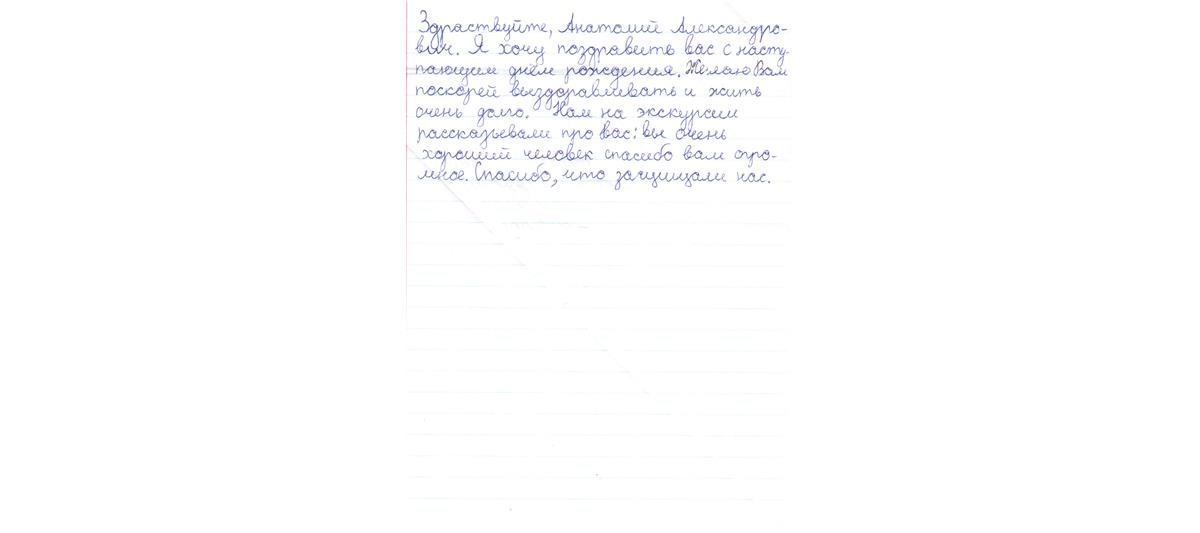 Здраствуйте, Анатолий Александро-
вич. Я хочу поздравить вас с насту-
пающим днём рождения. Желаю Вам
поскорей выздоравливать и жить
очень долго. Нам на экскурсии
рассказывали про вас: вы очень
хороший человек спасибо вам огро-
мное. Спасибо, что защищали нас.